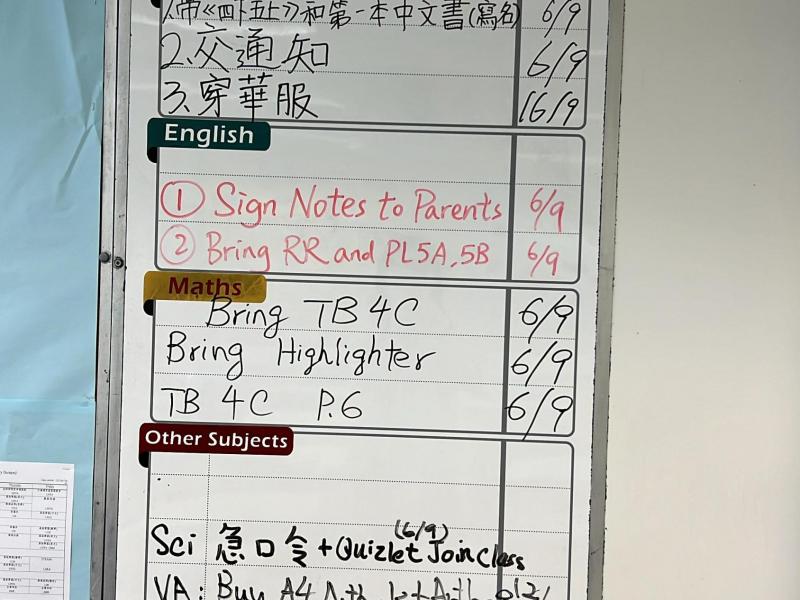 1.帶《四下五上》和第一本中文書(寫名) 6/9
2.交通知 6/9
3.穿華服 16/9
English
① Sign Notes to Parents 6/9
② Bring RR and PL5A,5B 6/9
Maths
Bring TB 4C 6/9
Bring Highlighter 6/9
TB 4C P.6 6/9
Other Subjects
(6/9)
Sci 急口令+Quizlet Join Class
VA: Buy A4